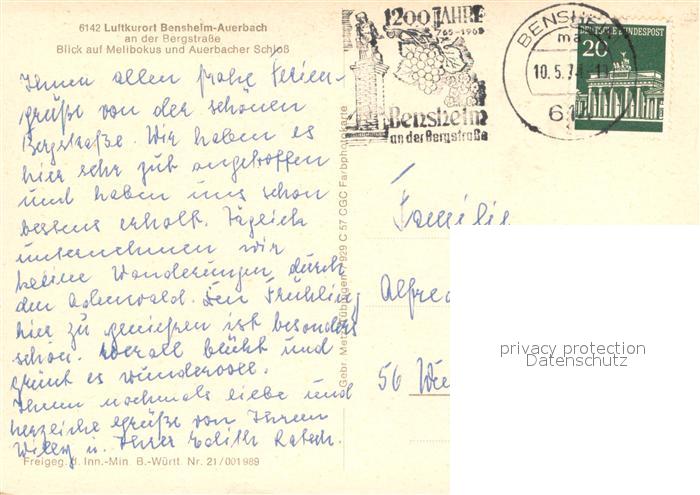 6142 Luftkurort Bensheim-Auerbach
an der Bergstraße
Blick auf Melibokus und Auerbacher Schloß
Ihnen allen frohe Ferien-
grüße von der schönen
Bergstraße. Wir haben es
hier sehr gut angetroffen
und haben uns schon
bestens erholt. Täglich
unternehmen wir
kleine Wanderungen durch
den Odenwald. Den Frühling
hier zu genießen ist besonders
schön. Überall blüht und
grünt es wundervoll.
Ihnen nochmals liebe und
herzliche Grüße von Ihrem
Willy u. Ihrer Edith
Freigeg. d. Inn.-Min B.-Württ Nr. 21/001989
Gebr. Metz Tübingen 7929 C 57 CGC Farbphotokarte
1200 JAHRE
765-1965
Bensheim
an der Bergstraße
BENSHEIM
10.5.7
614
DEUTSCHE BUNDESPOST
20
Familie
Alfred
56
privacy protection
Datenschutz